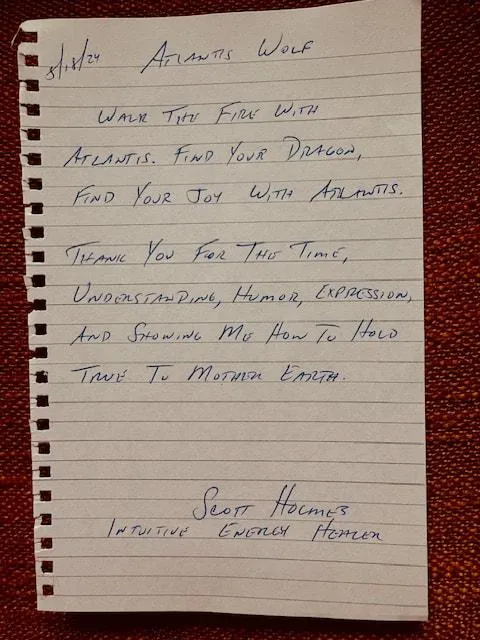 5/18/24 Atlantis Wolf
Walk The Fire With
Atlantis. Find Your Dragon,
Find Your Joy With Atlantis.
Thank You For The Time,
Understanding, Humor, Expression,
And Showing Me How To Hold
True To Mother Earth.
Scott Holmes
Intuitive Energy Healer